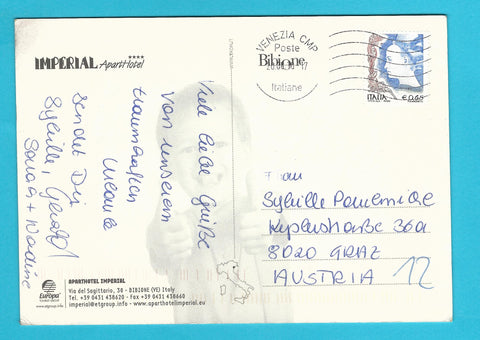 IMPERIAL ****
ApartHotel
Viele liebe Grüße
von unserem
traumhaften
Urlaub
sendet Dir
Sybille, Gerald,
Sarah + Nadine
VENEZIA CMP
Poste
Italiane
Bibione
ITALIA € 0,65
Frau
Sybille
Keplerstraße 36a
8020 GRAZ
AUSTRIA
12
Europa
www.etgroup.info
APARTHOTEL IMPERIAL
Via del Sagittario, 30 - BIBIONE (VE) Italy
Tel. +39 0431 438620 - Fax +39 0431 438660
imperial@etgroup.info - www.aparthotelimperial.eu